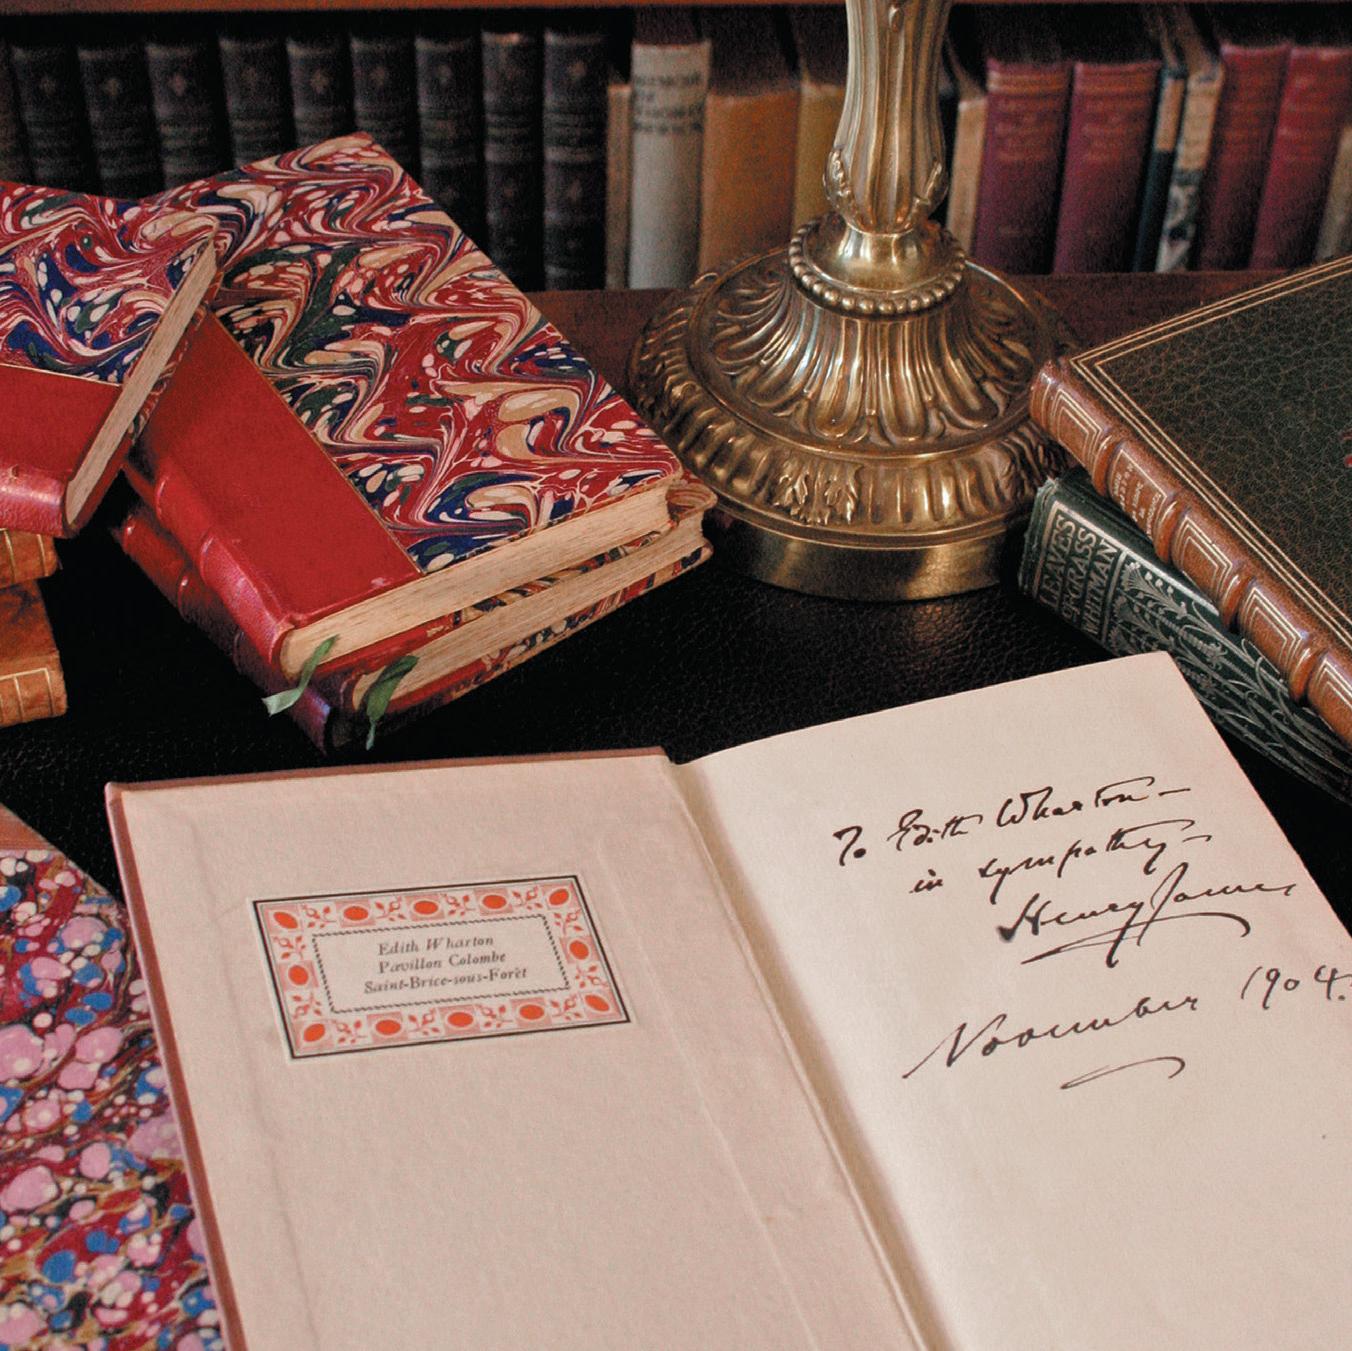 LEAVES
OF GRASS
WHITMAN
Edith Wharton
Pavillon Colombe
Saint-Brice-sous-Forêt
To Edith Wharton –
in sympathy –
Henry James
November 1904.